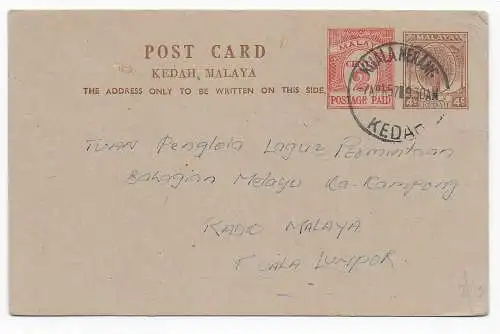 POST CARD
KEDAH, MALAYA
THE ADDRESS ONLY TO BE WRITTEN ON THIS SIDE
MALAYA
POSTAGE PAID
MALAYA
KEDAH
KEDAH
Tuan Penglola Lagu2 Permintaan
Bahagian Melayu Ka-Kampong
Radio Malaya
Kuala Lumpor.